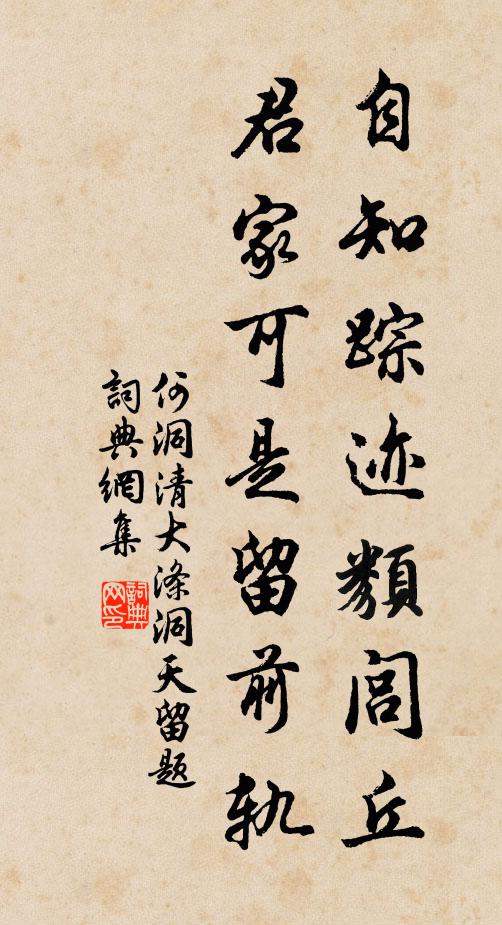 自知踪迹類閭丘
君家可是留前軌
何洞清大滌洞天留題
詞典網集
詞典網印